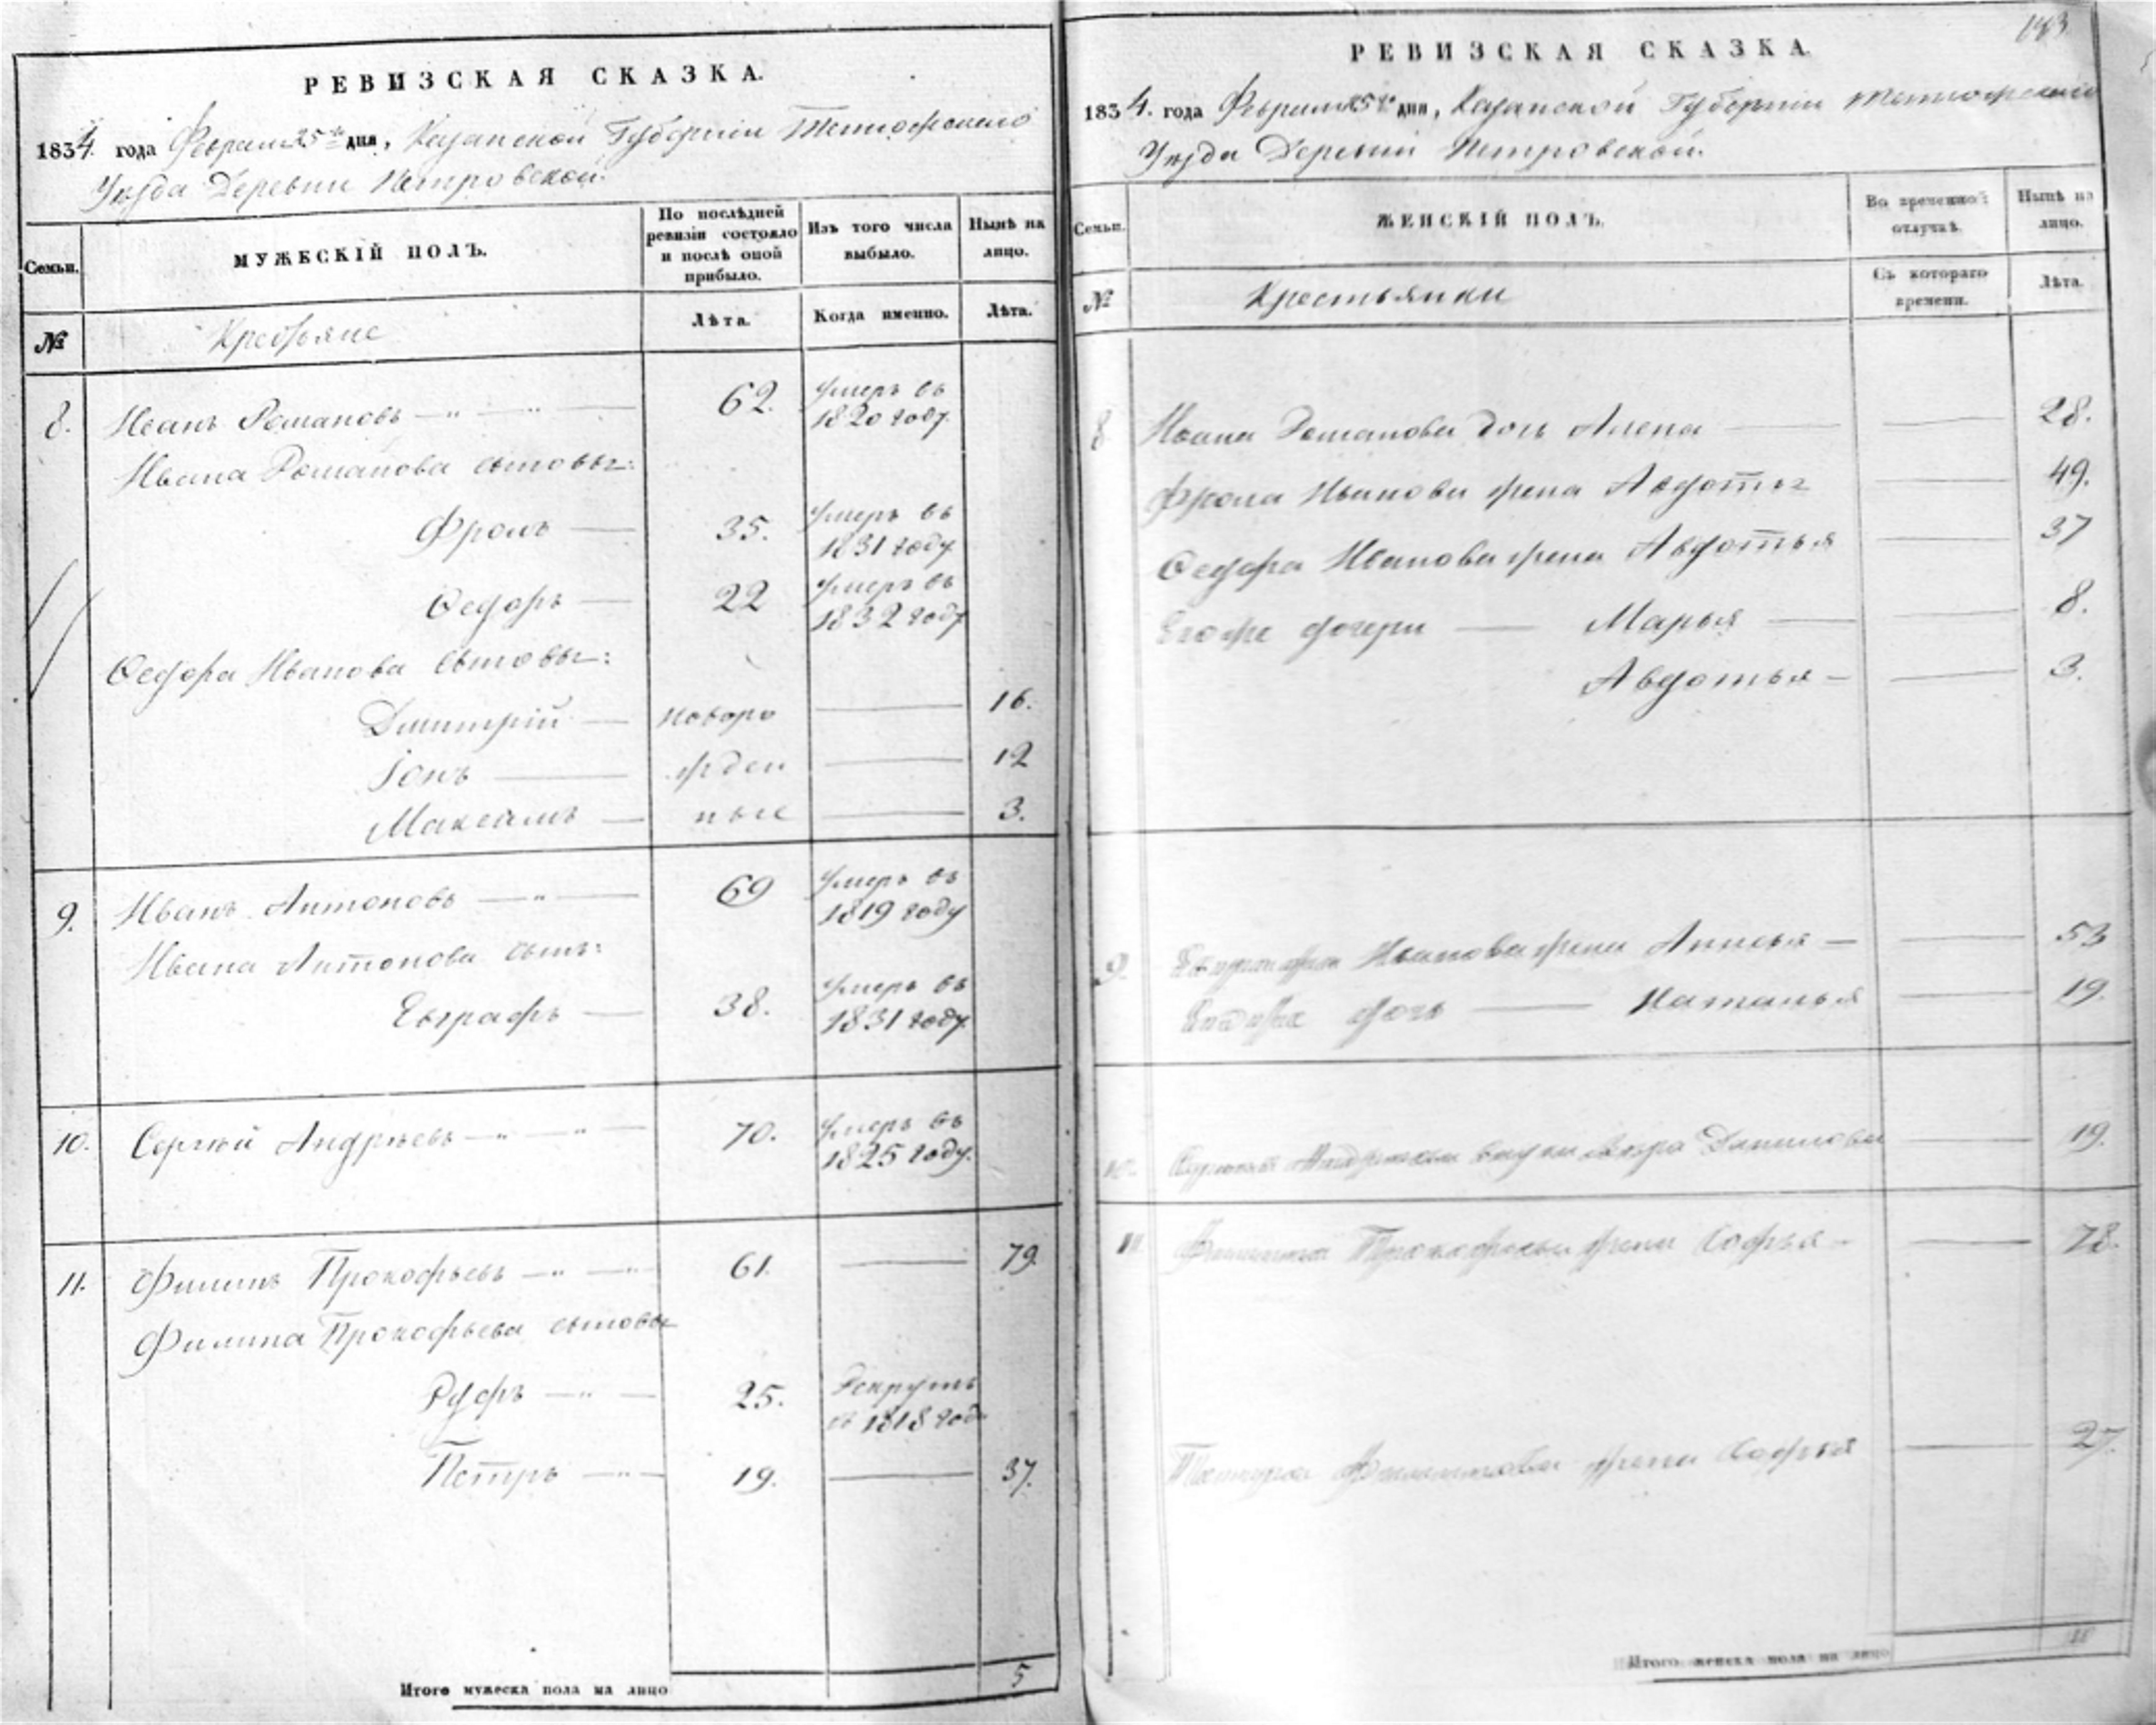 РЕВИЗСКАЯ СКАЗКА.
1834. года Февраля 25го дня, Казанской Губернiи Тетюшскаго
Уѣзда Деревни Петровской.
Семьи.
МУЖЕСКІЙ ПОЛЪ.
По послѣдней ревизіи состояло и послѣ оной прибыло.
Изъ того числа выбыло.
Нынѣ на лицо.
№
Крестьяне
Лѣта.
Когда именно.
Лѣта.
8. Иванъ Романовъ 62. умеръ въ 1820 году.
Ивана Романова сыновья:
Фролъ 35. умеръ въ 1831 году.
Ѳедоръ 22 умеръ въ 1832 году
Ѳедора Иванова сыновья:
Дмитрій новоро 16.
Іонъ жден 12
Максимъ ные 3.
9. Иванъ Антоновъ 69 умеръ въ 1819 году
Ивана Антонова сынъ:
Евграфъ 38. умеръ въ 1831 году.
10. Сергѣй Андрѣевъ 70. умеръ въ 1825 году.
11. Филипъ Прокофьевъ 61. 79.
Филипа Прокофьева сыновья
Руфъ 25. Рекрутъ въ 1818 году
Петръ 19. 37.
Итого мужеска пола на лицо 5
РЕВИЗСКАЯ СКАЗКА.
1834. года Февраля 25го дня, Казанской Губернiи
Уѣзда Деревни Петровской.
Семьи.
ЖЕНСКІЙ ПОЛЪ.
Во временной отлучкѣ.
Нынѣ на лицо.
№
Крестьянки
Съ котораго времени.
Лѣта.
8 Ивана Романова дочь Алена 28.
Фрола Иванова жена Авдотья 49.
Ѳедора Иванова жена Авдотья 37
Егоже дочери Марья 8.
Авдотья 3.
9. Евграфа Иванова жена Анисья 53
Егоже дочь Наталья 19.
10. Сергѣя Андрѣева внука Данилова 19.
11. Филипа Прокофьева жена Софья 78.
Петра Филипова жена Софья 27.
Итого женска пола на лицо